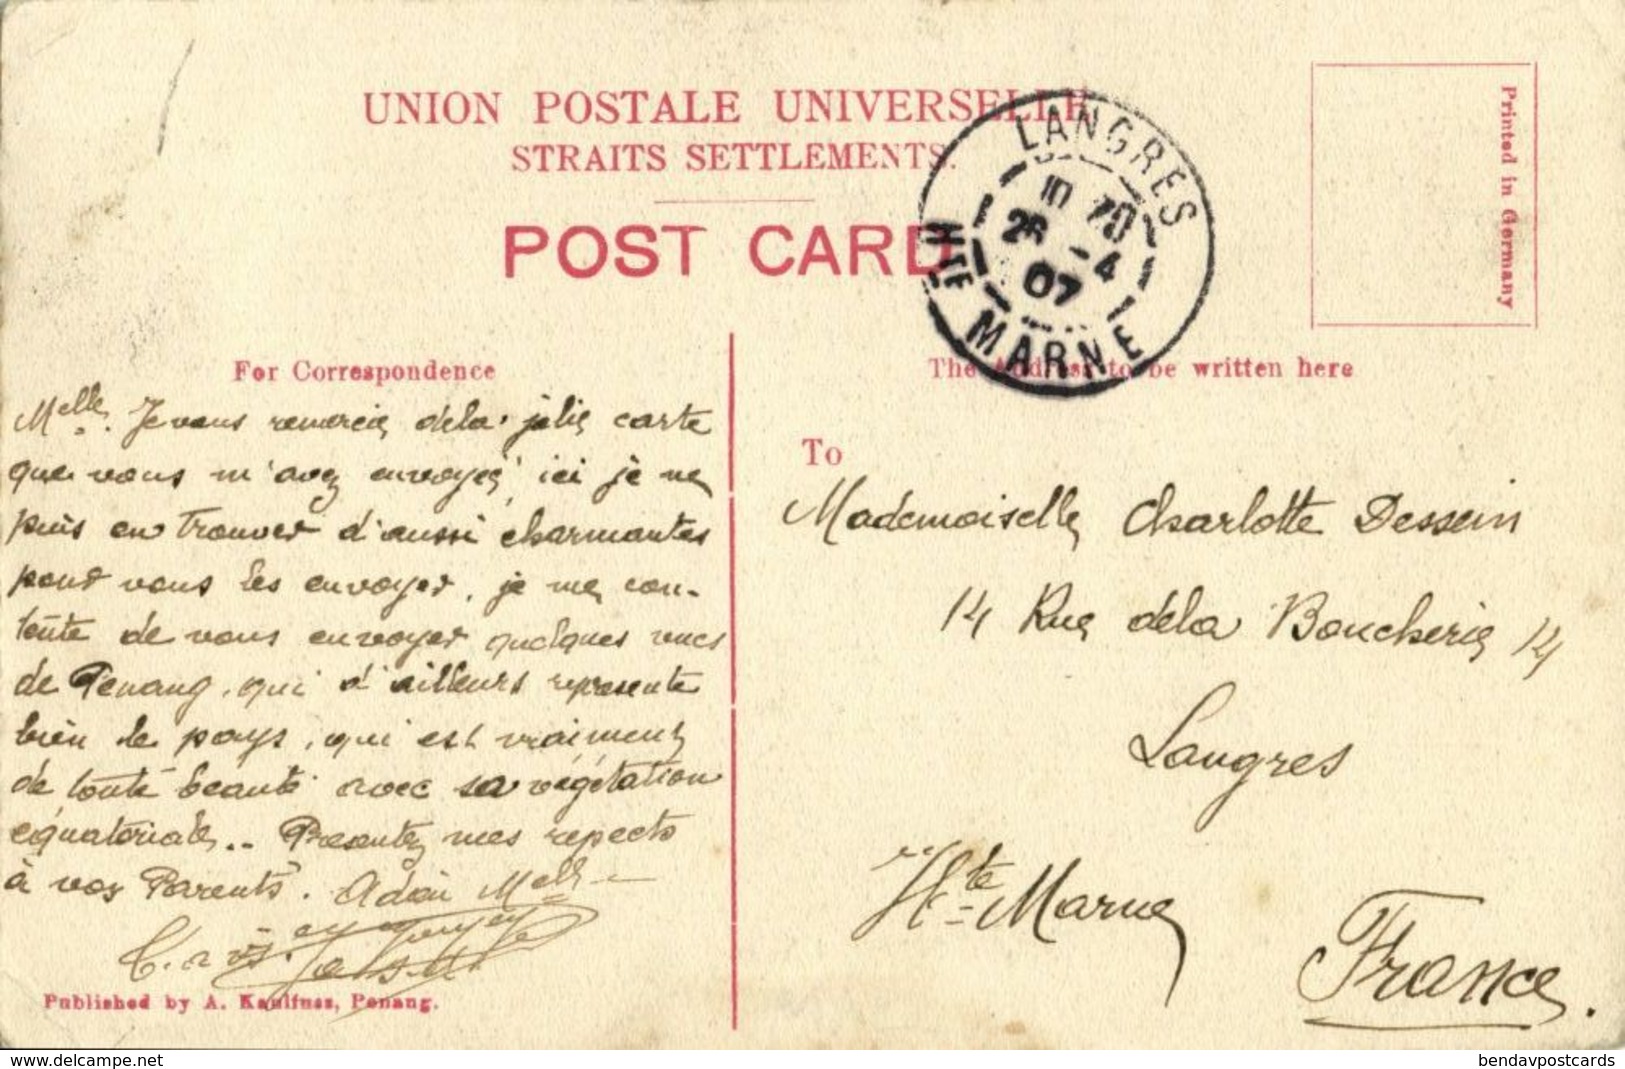 UNION POSTALE UNIVERSELLE
STRAITS SETTLEMENTS.
POST CARD
LANGRES
10
26 - 4
07
HTE MARNE
Printed in Germany
For Correspondence
The Address to be written here
Melle. Je vous remercie de la jolie carte
que vous m'avez envoyée, ici je ne
puis en trouver d'aussi charmantes
pour vous les envoyer, je me con-
tente de vous envoyer quelques vues
de Penang, qui d'ailleurs represente
bien le pays, qui est vraiment
de toute beauté avec sa végétation
équatoriale.. Presentez mes repects
à vos Parents. Adieu Melle
To
Mademoiselle Charlotte Dessein
14 Rue de la Boucherie 14
Langres
Hte Marne
France.
Published by A. Kaulfuss, Penang.
delcampe.net
bendavpostcards